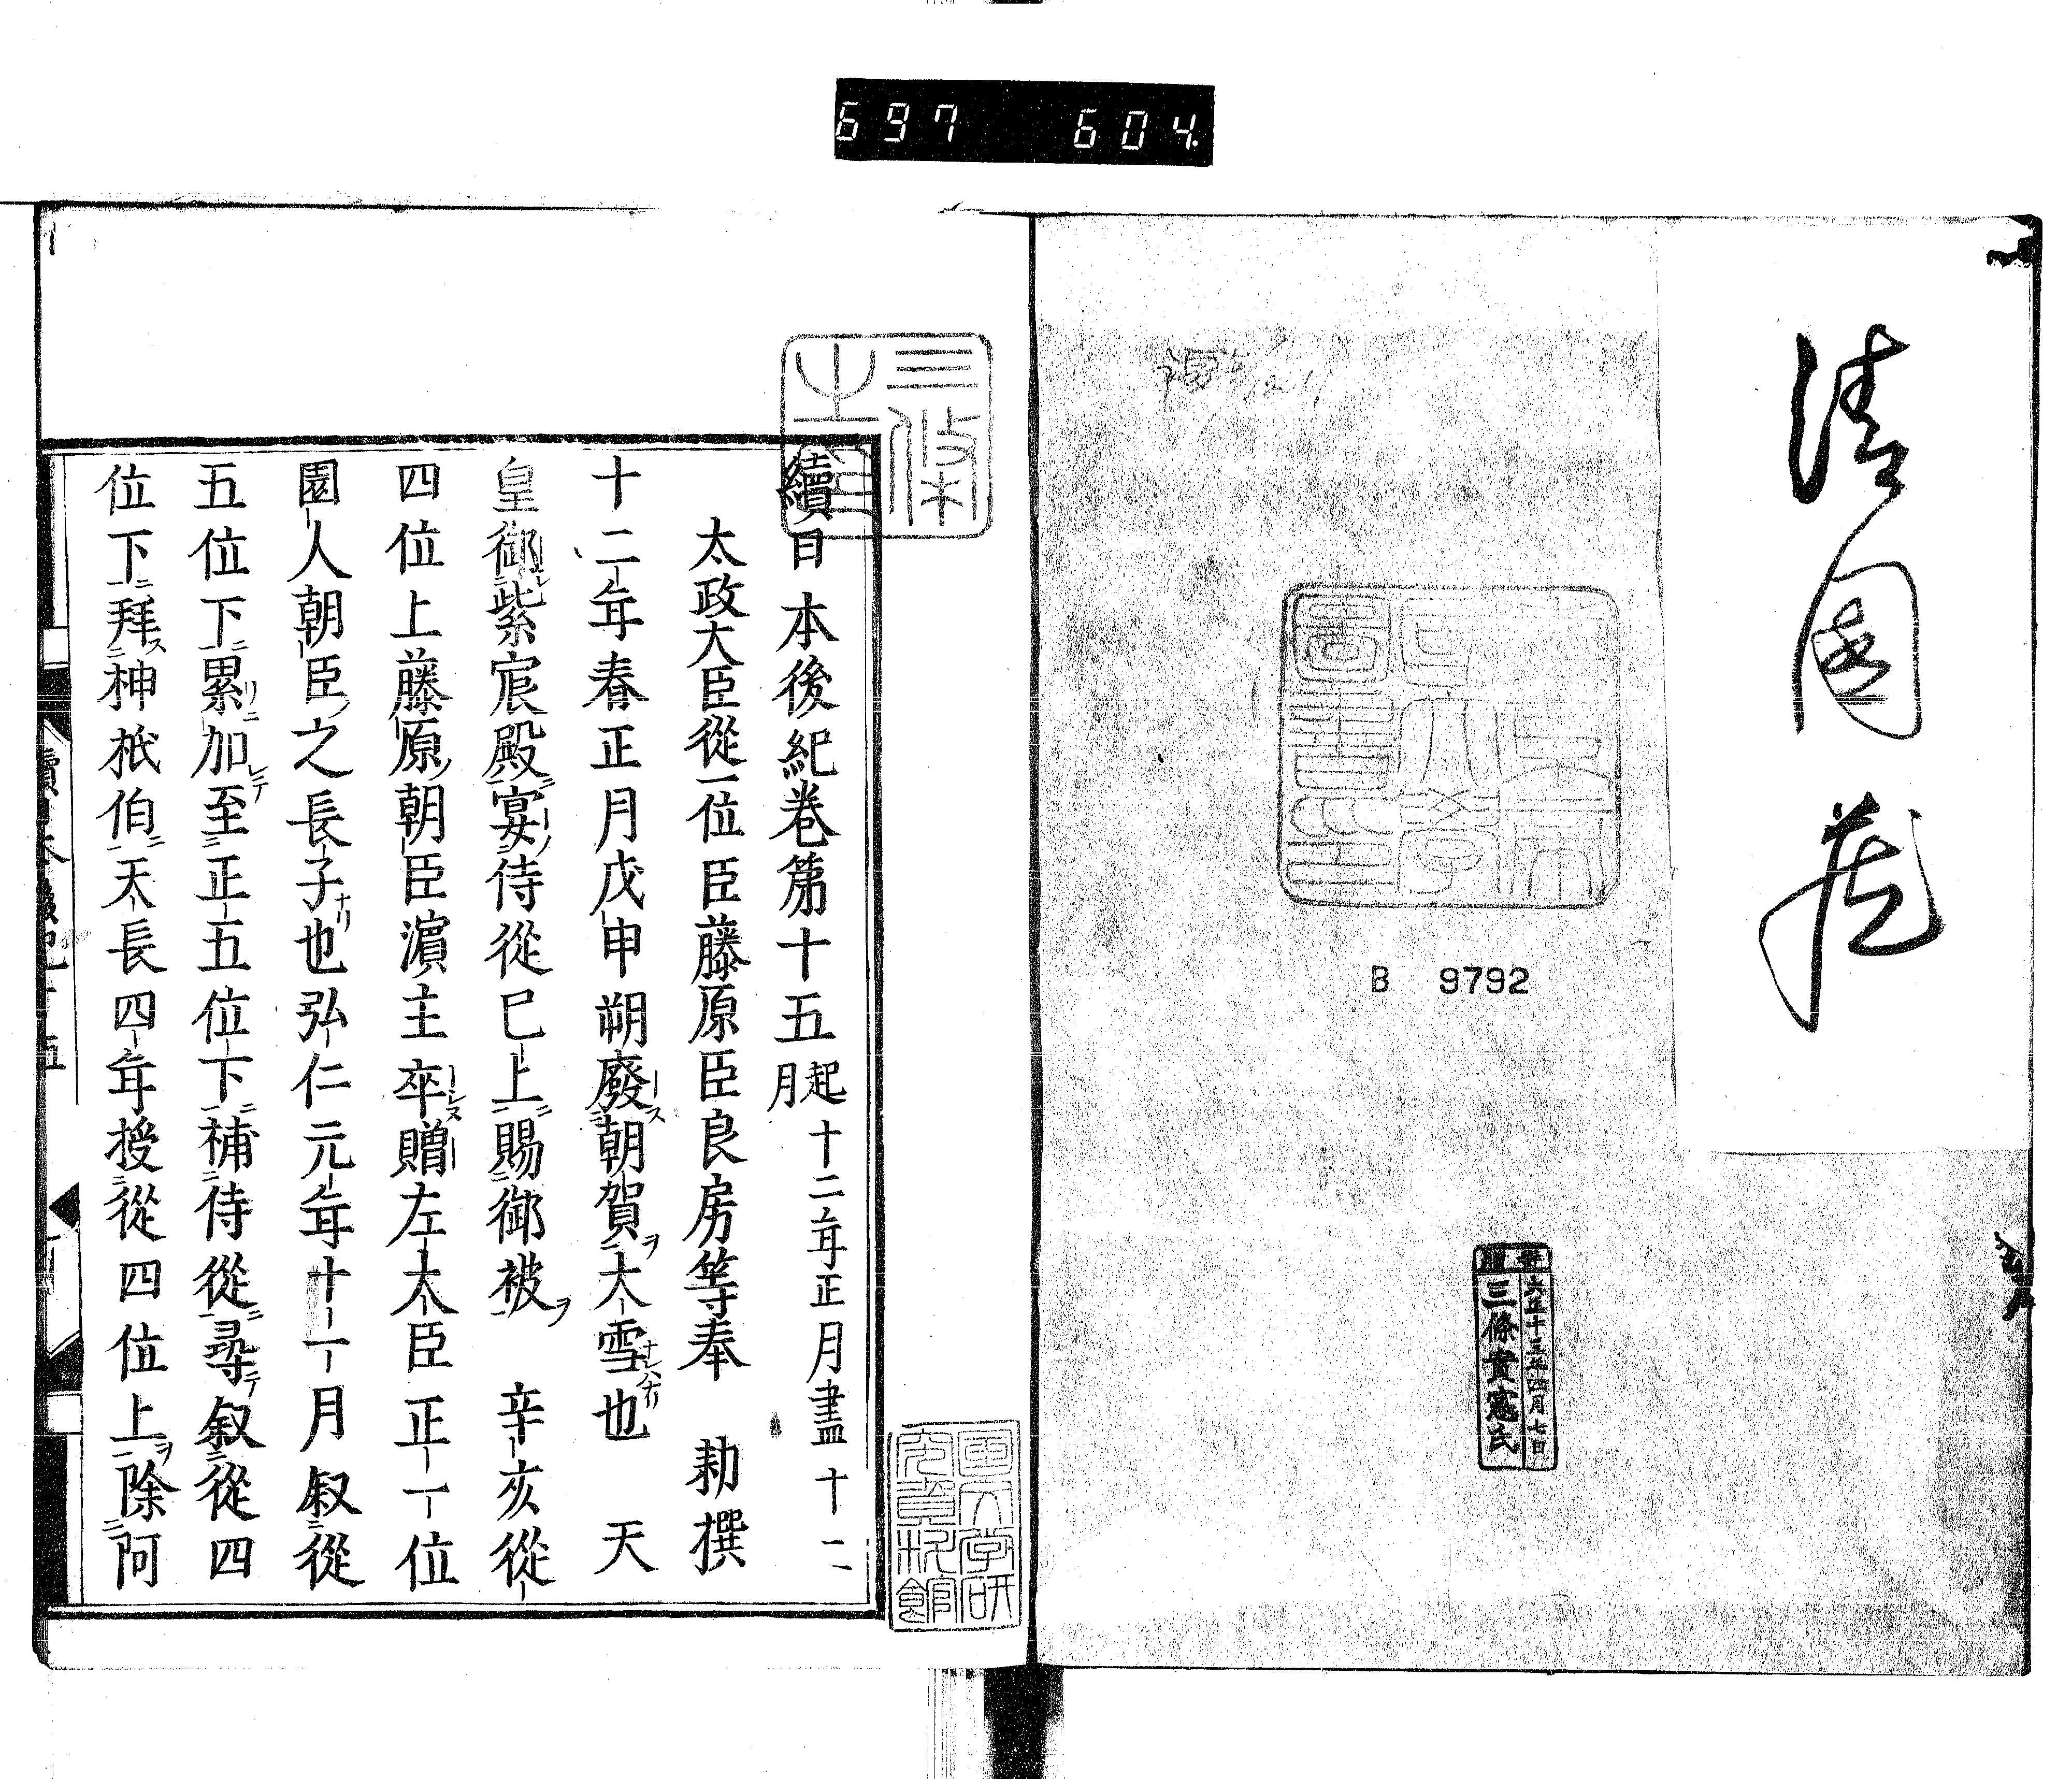 697 604
B 9792
大正十三年四月七日
三條實憲氏
寄贈
續日本後紀卷第十五 起十二年正月盡十二月
太政大臣從一位臣藤原臣良房等奉 勅撰
十二年春正月戊申朔廢朝賀大雪也 天
皇御紫宸殿宴侍從已上賜御被 辛亥從
四位上藤原朝臣濵主卒贈左大臣正一位
園人朝臣之長子也弘仁元年十一月叙從
五位下累加至正五位下補侍從尋叙從四
位下拜神祇伯天長四年授從四位上除阿